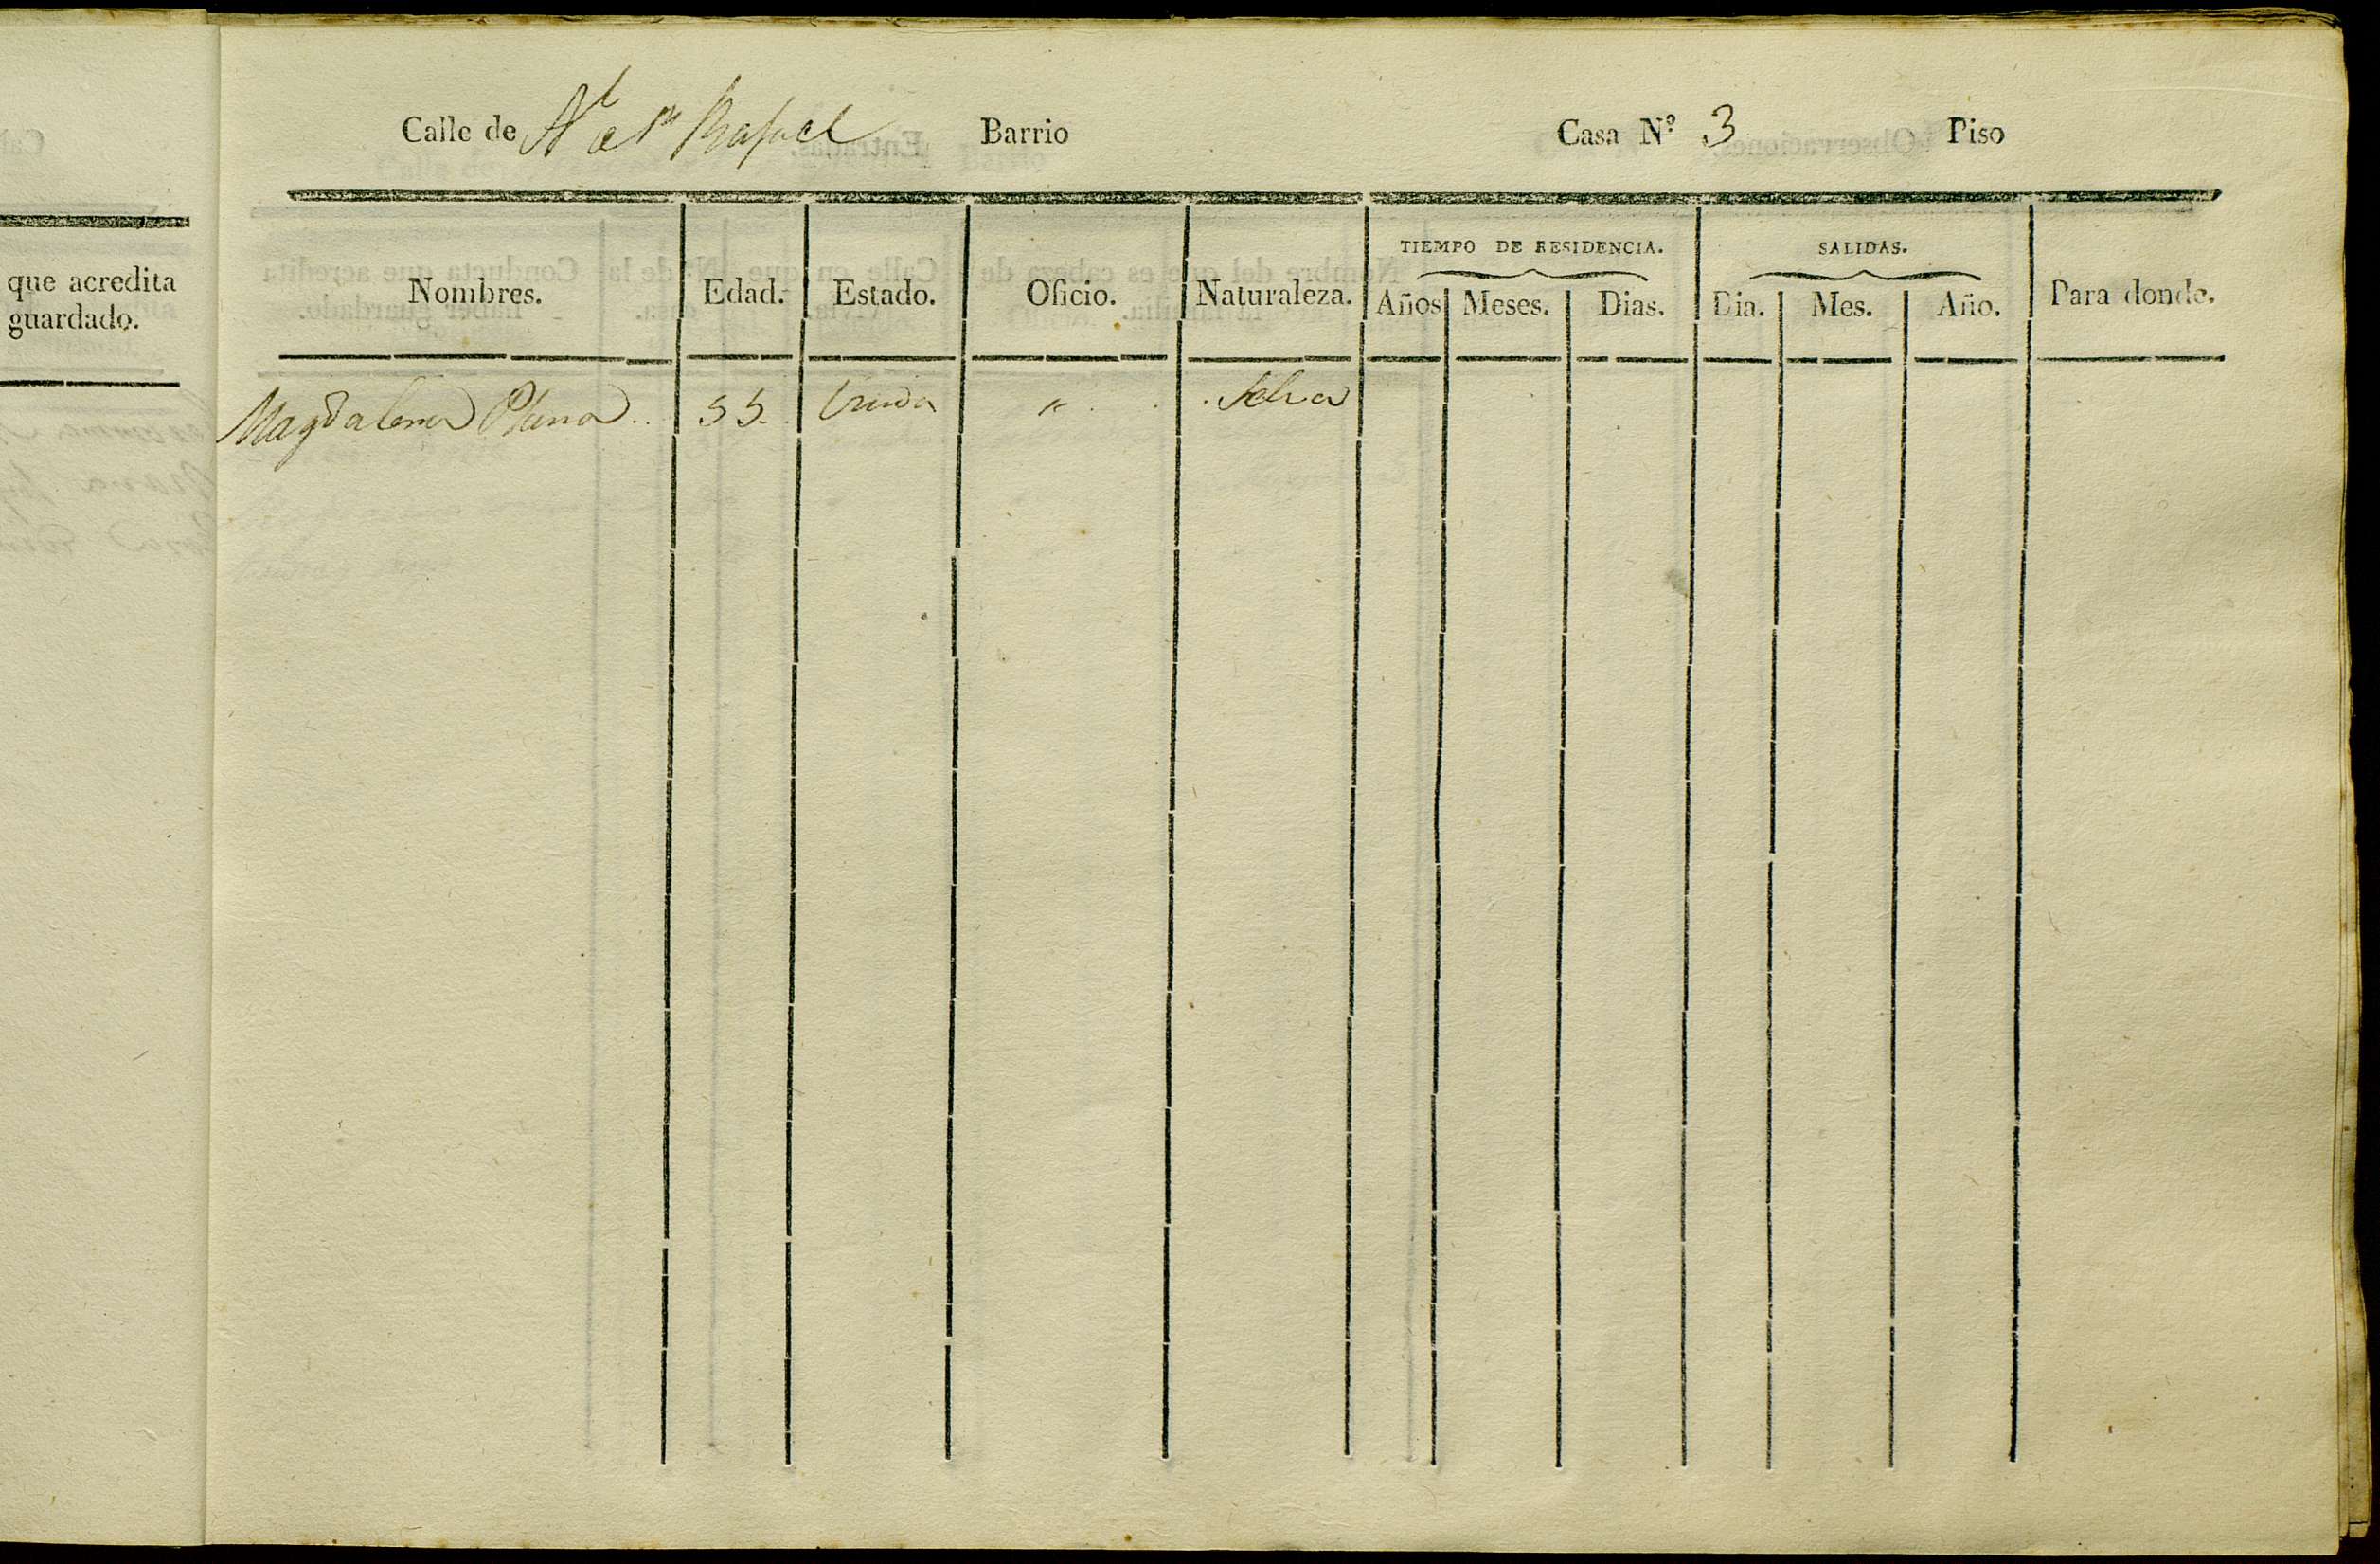 Calle de Al de Sn Rafael Barrio Casa Nº 3 Piso
que acredita
guardado.
TIEMPO DE RESIDENCIA. SALIDAS.
Nombres. Edad. Estado. Oficio. Naturaleza. Años Meses. Dias. Dia. Mes. Año. Para donde.
Magdalena Plana .. 55. Viuda " . . . Selva